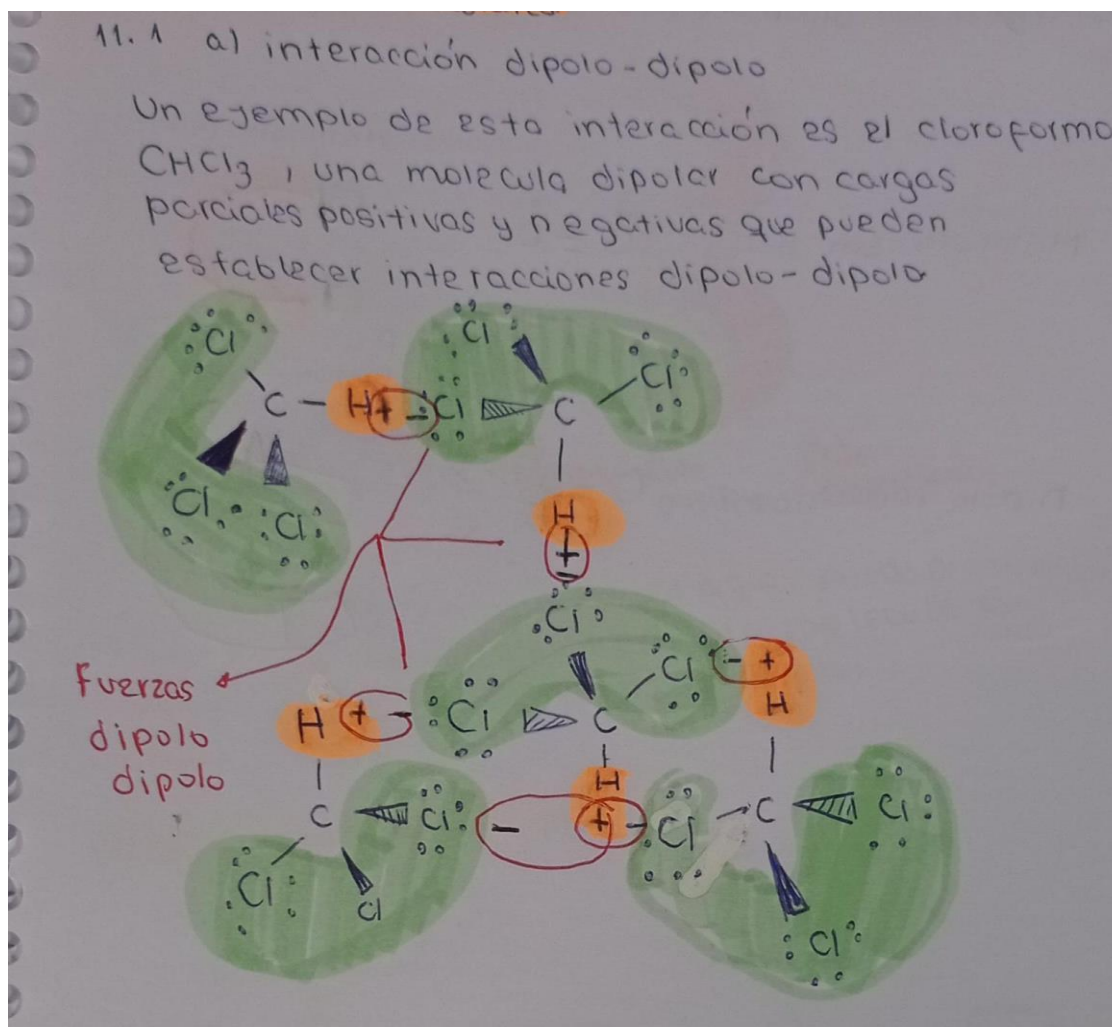 11.1 a) interacción dipolo-dipolo
Un ejemplo de esta interacción es el cloroformo
CHCl3, una molecula dipolar con cargas
parciales positivas y negativas que pueden
establecer interacciones dipolo-dipolo
Cl Cl
Cl
C - H + - Cl C
Cl Cl H
+
-
Cl
Cl - +
Fuerzas
H + - Cl C H
dipolo
dipolo
H
C Cl - + - Cl C Cl
Cl Cl
Cl